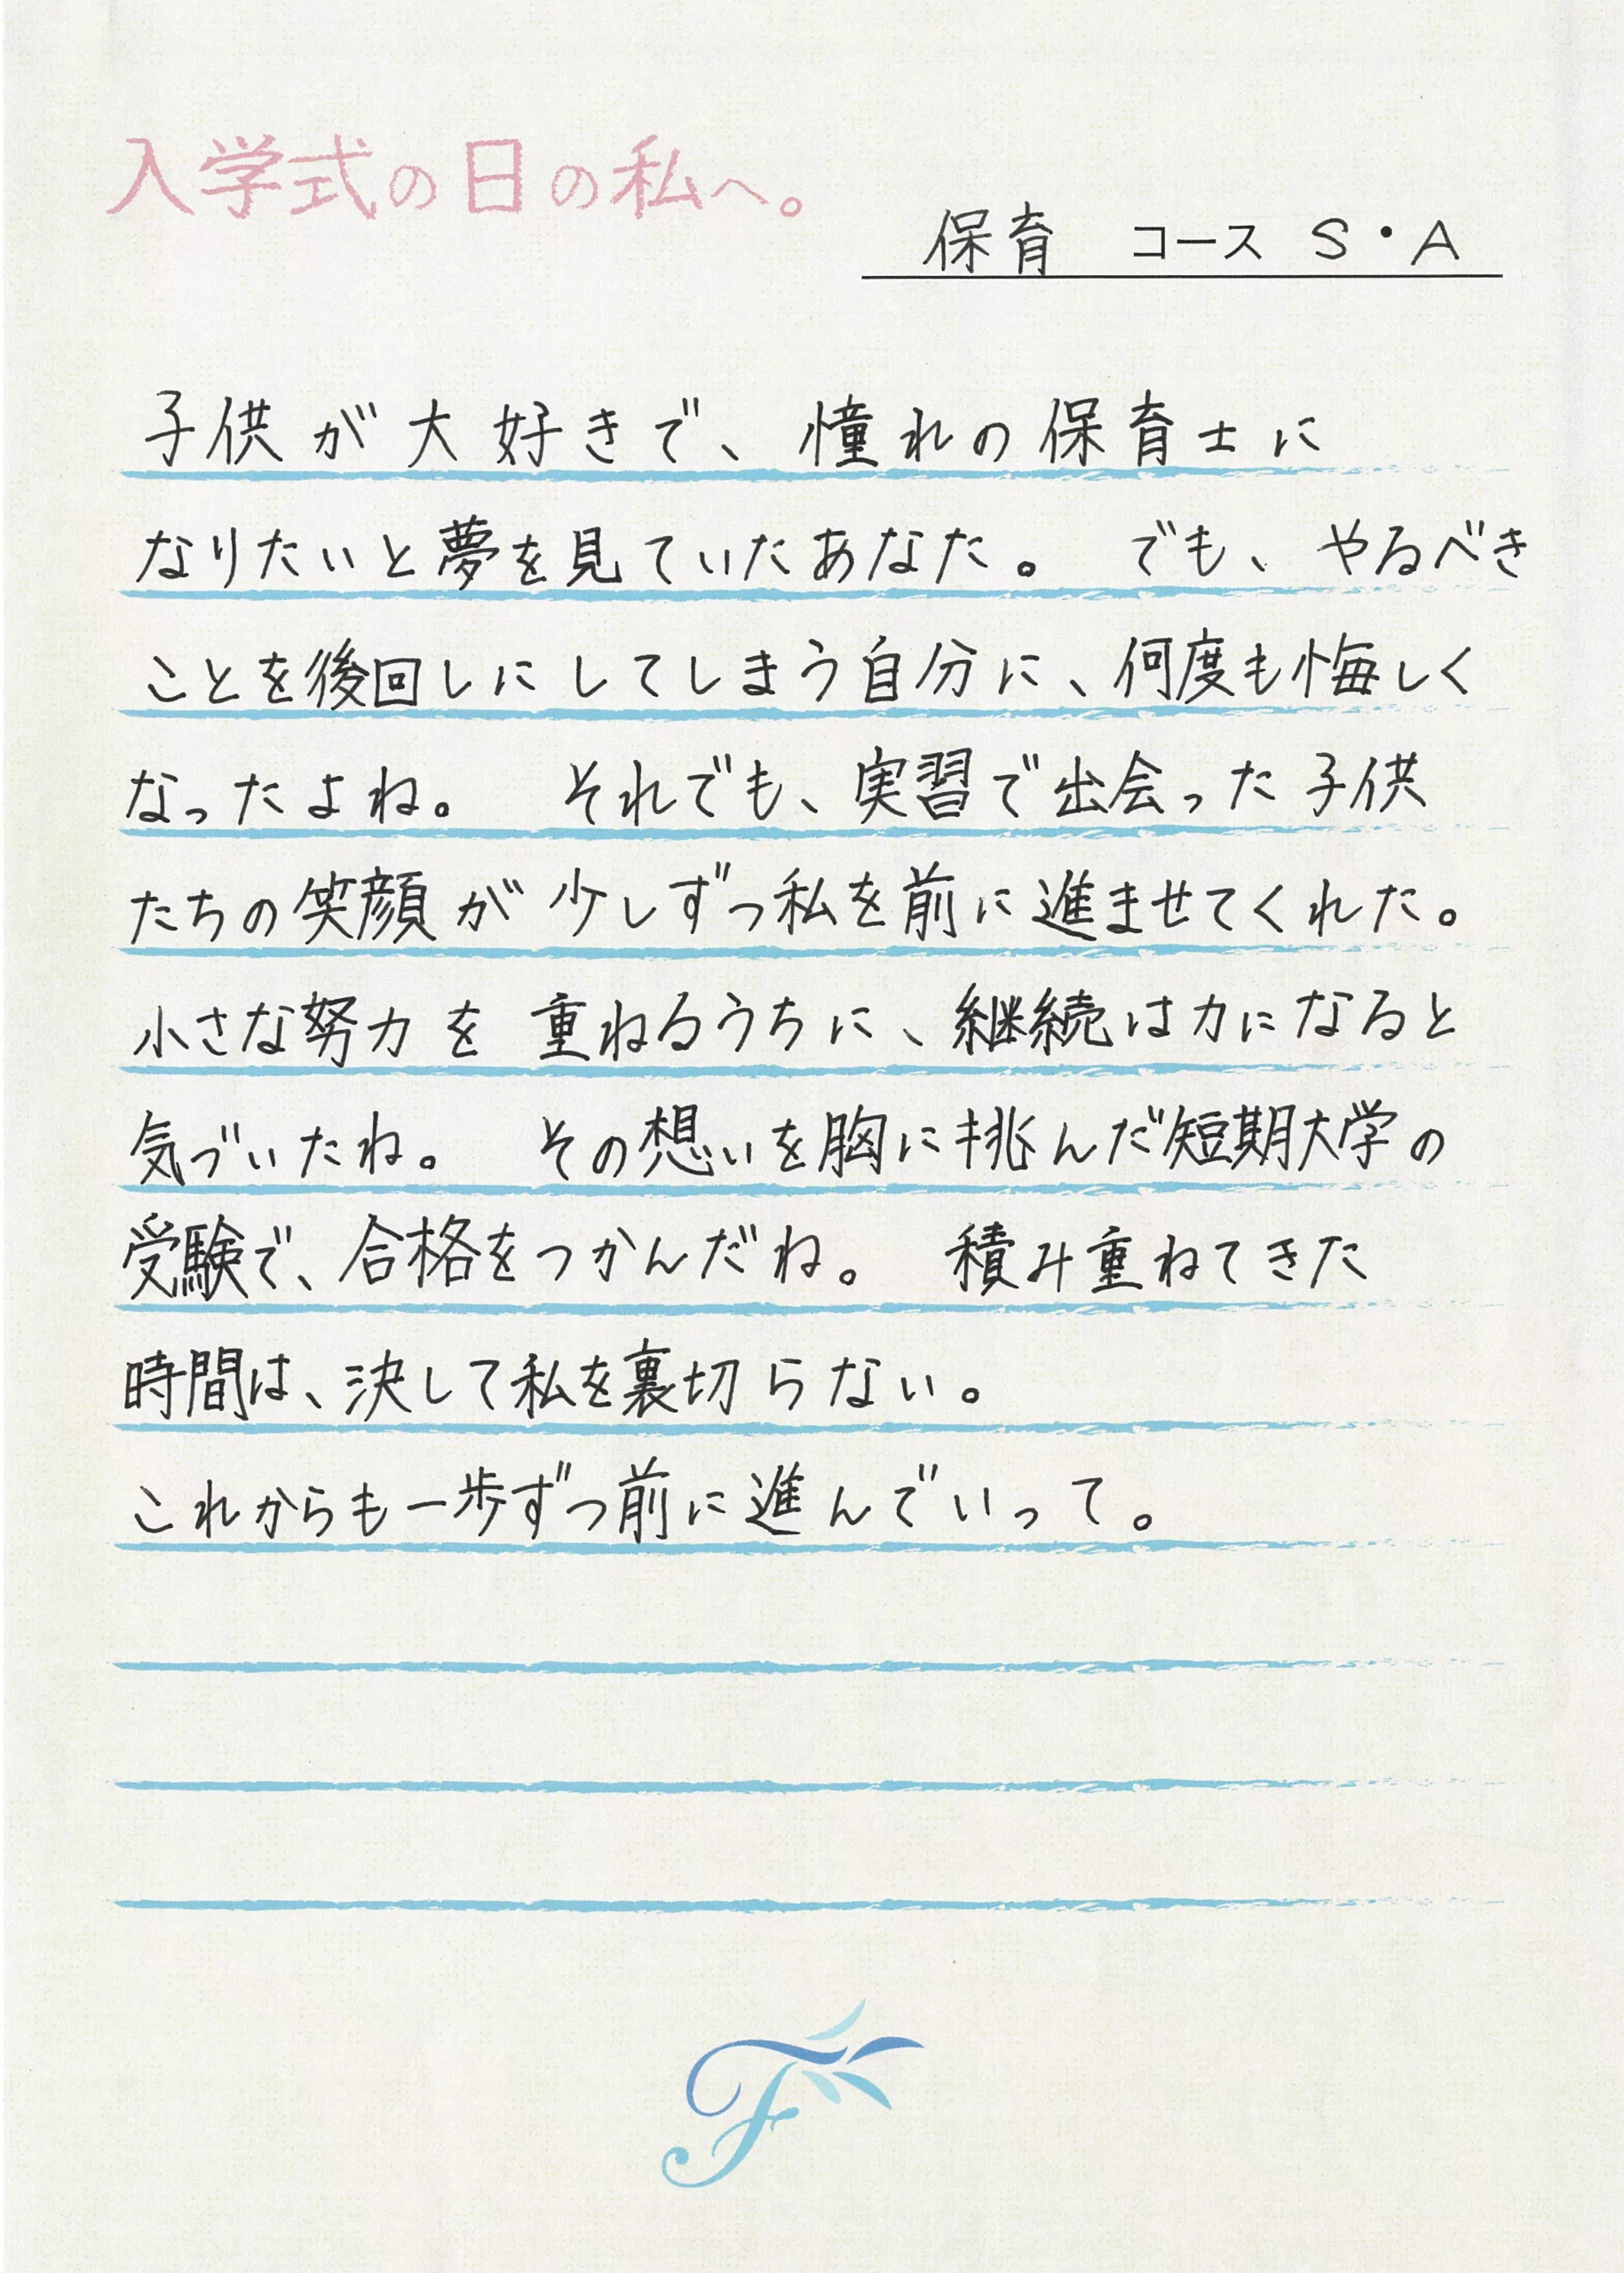 入学式の日の私へ。
保育 コース S・A
子供が大好きで、憧れの保育士に
なりたいと夢を見ていたあなた。 でも、やるべき
ことを後回しにしてしまう自分に、何度も悔しく
なったよね。 それでも、実習で出会った子供
たちの笑顔が少しずつ私を前に進ませてくれた。
小さな努力を重ねるうちに、継続は力になると
気づいたね。 その想いを胸に挑んだ短期大学の
受験で、合格をつかんだね。 積み重ねてきた
時間は、決して私を裏切らない。
これからも一歩ずつ前に進んでいって。
F